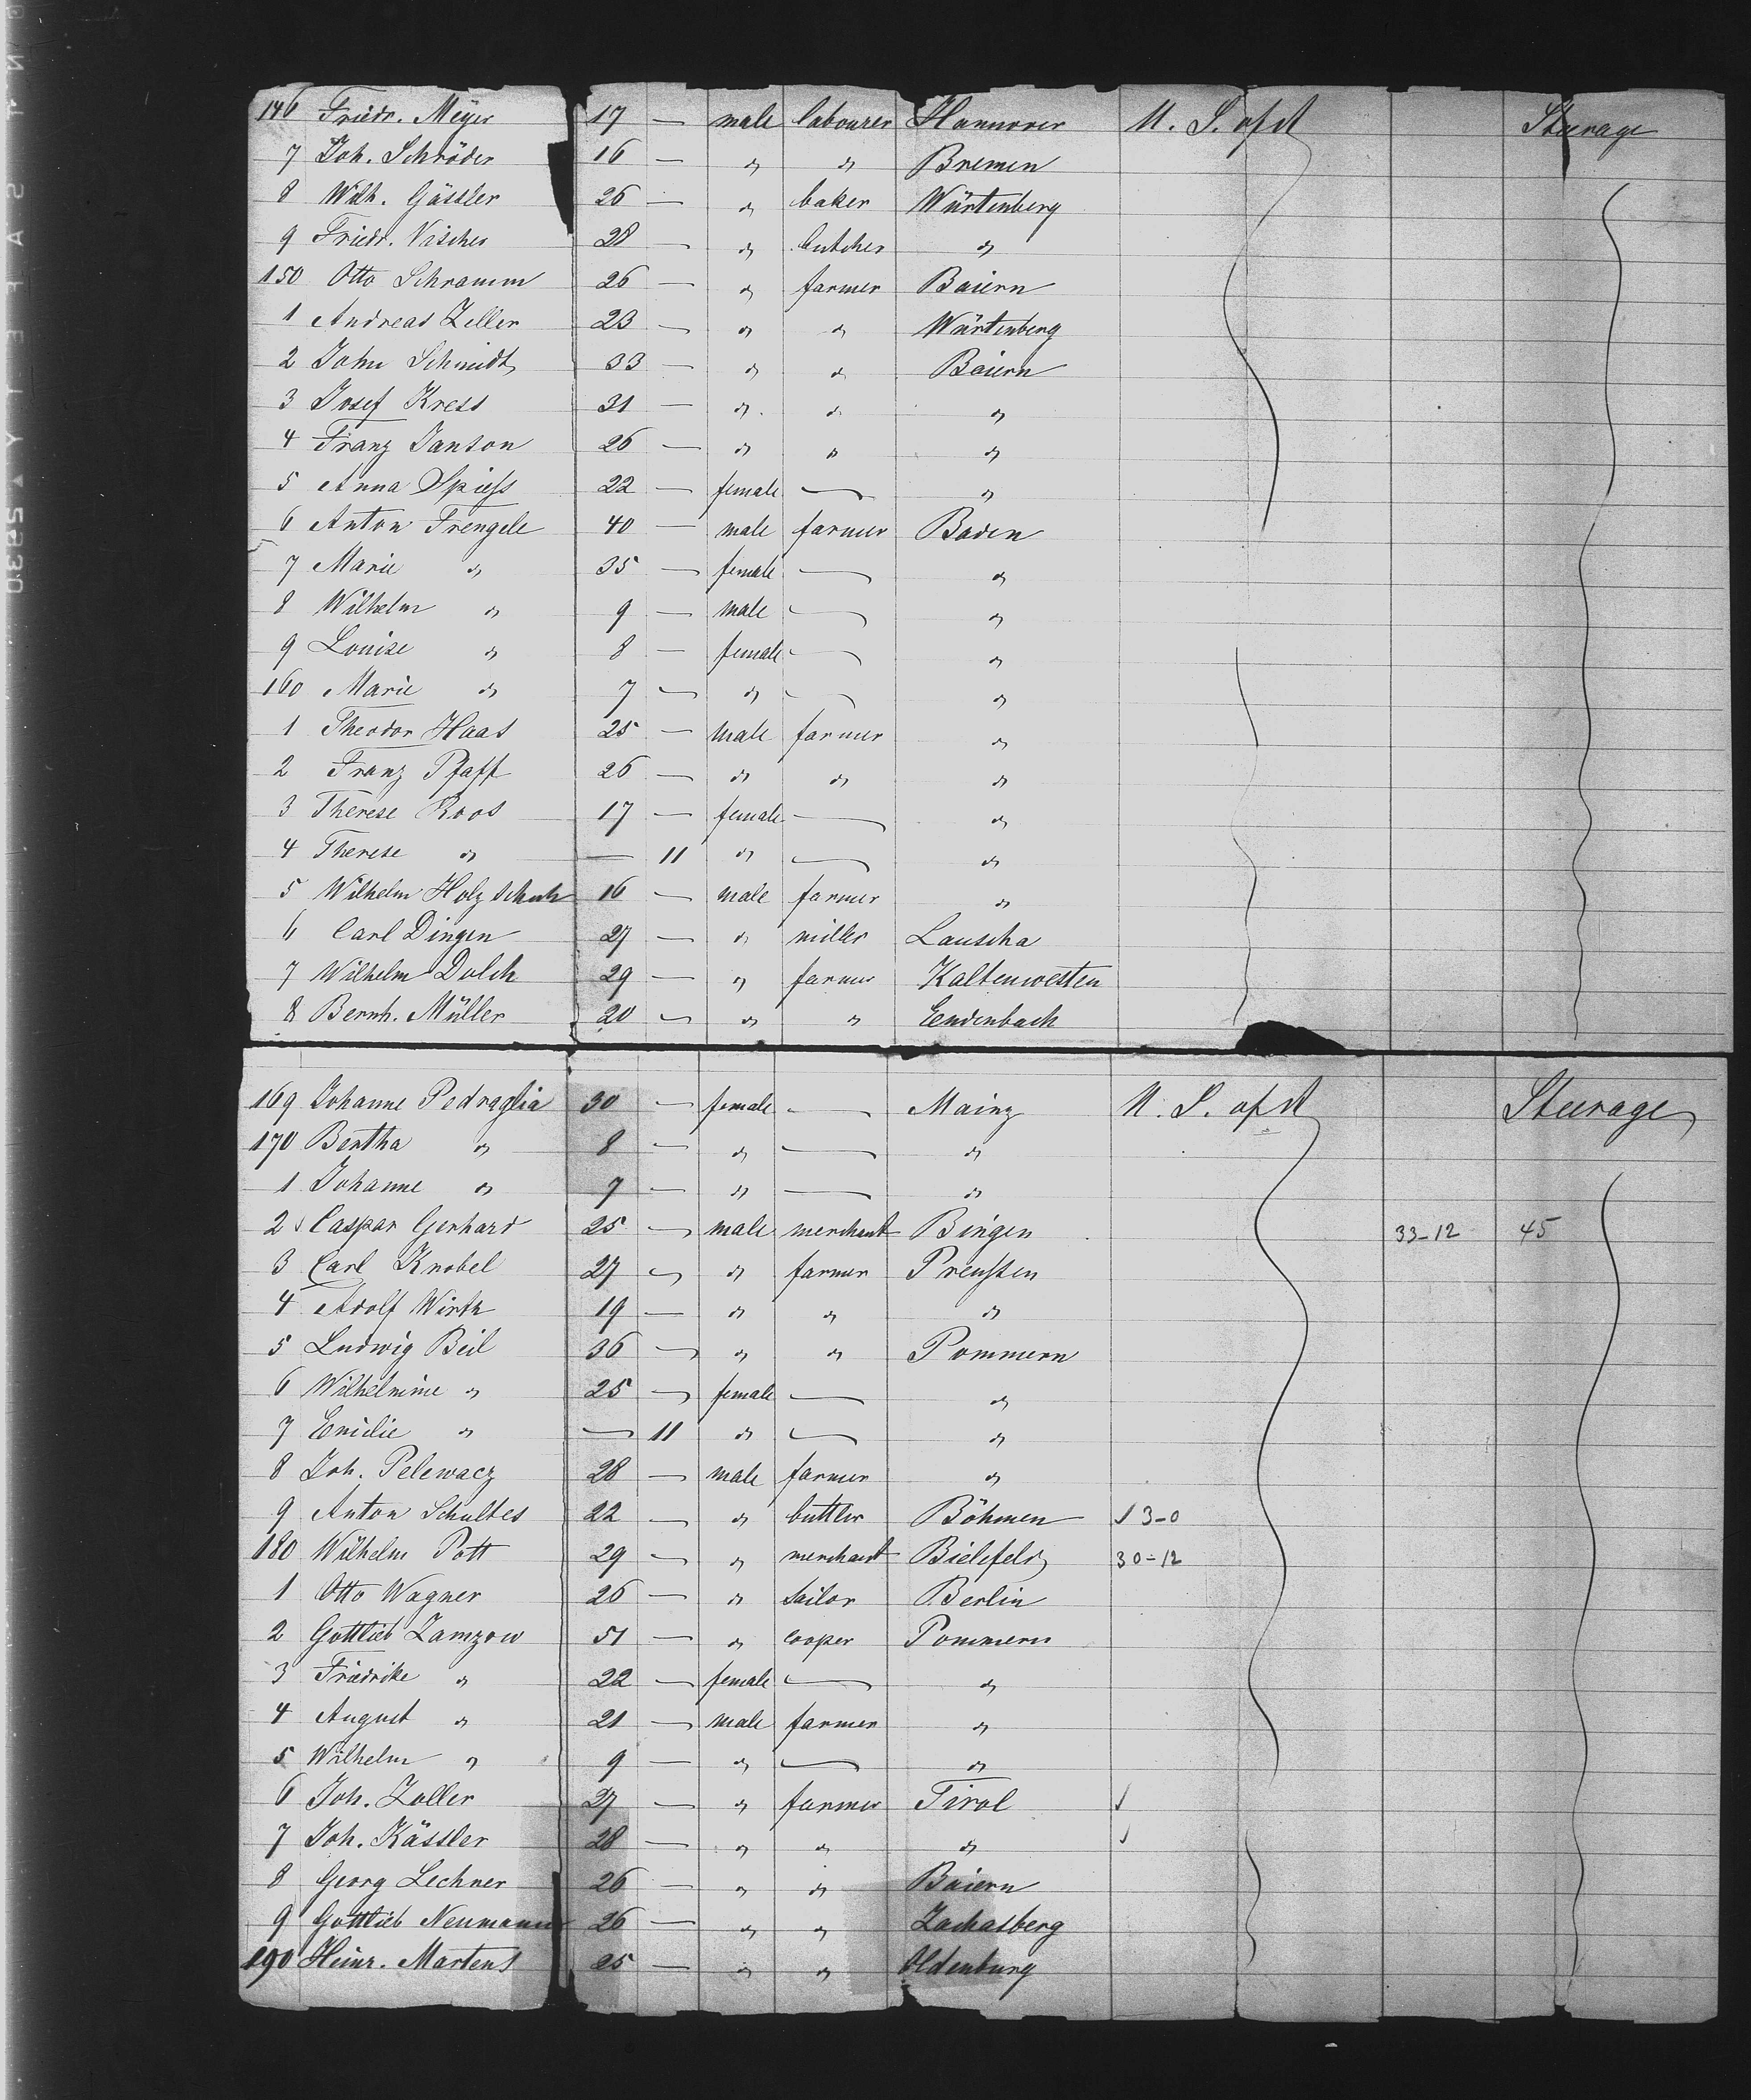 146 Friedr. Meyer 17 — male labourer Hannover U. S. of A Steerage
7 Joh. Schröder 16 — " " Bremen
8 Wilh. Gässler 26 — " baker Würtenberg
9 Friedr. Vischer 28 — " butcher "
150 Otto Schramm 26 — " farmer Baiern
1 Andreas Zeller 23 — " " Würtenberg
2 John Schmidt 33 — " " Baiern
3 Josef Kress 31 — " " "
4 Franz Janson 26 — " " "
5 Anna Spiess 22 — female — "
6 Anton Frengele 40 — male farmer Baden
7 Marie " 35 — female — "
8 Wilhelm " 9 — male — "
9 Louise " 8 — female — "
160 Marie " 7 — " — "
1 Theodor Haas 25 — male farmer "
2 Franz Pfaff 26 — " " "
3 Therese Roos 17 — female — "
4 Therese " — 11 " — "
5 Wilhelm Holzschuh 16 — male farmer "
6 Carl Dingen 27 — " miller Lauscha
7 Wilhelm Dolch 29 — " farmer Kaltenwesten
8 Bernh. Müller 20 — " " Eendenbach
169 Johanne Pedraglia 30 — female — Mainz U. S. of A Steerage
170 Bertha " 8 — " — "
1 Johanne " 7 — " — "
2 Caspar Gerhard 25 — male merchant Bingen 33-12 45
3 Carl Knobel 27 — " farmer Preussen
4 Adolf Wirth 19 — " " "
5 Ludwig Beil 36 — " " Pommern
6 Wilhelmine " 25 — female — "
7 Emilie " — 11 " — "
8 Joh. Pelewacz 28 — male farmer "
9 Anton Schultes 22 — " buttler Böhmen √ 3-0
180 Wilhelm Pott 29 — " merchant Bielefeld 30-12
1 Otto Wagner 26 — " sailor Berlin
2 Gottlieb Zamzow 51 — " cooper Pommern
3 Friedrike " 22 — female — "
4 August " 21 — male farmer "
5 Wilhelm " 9 — " — "
6 Joh. Zoller 27 — " farmer Tirol √
7 Joh. Kässler 28 — " " " √
8 Georg Lechner 26 — " " Baiern
9 Gottlieb Neumann 26 — " " Zachasberg
190 Heinr. Martens 25 — " " Oldenburg